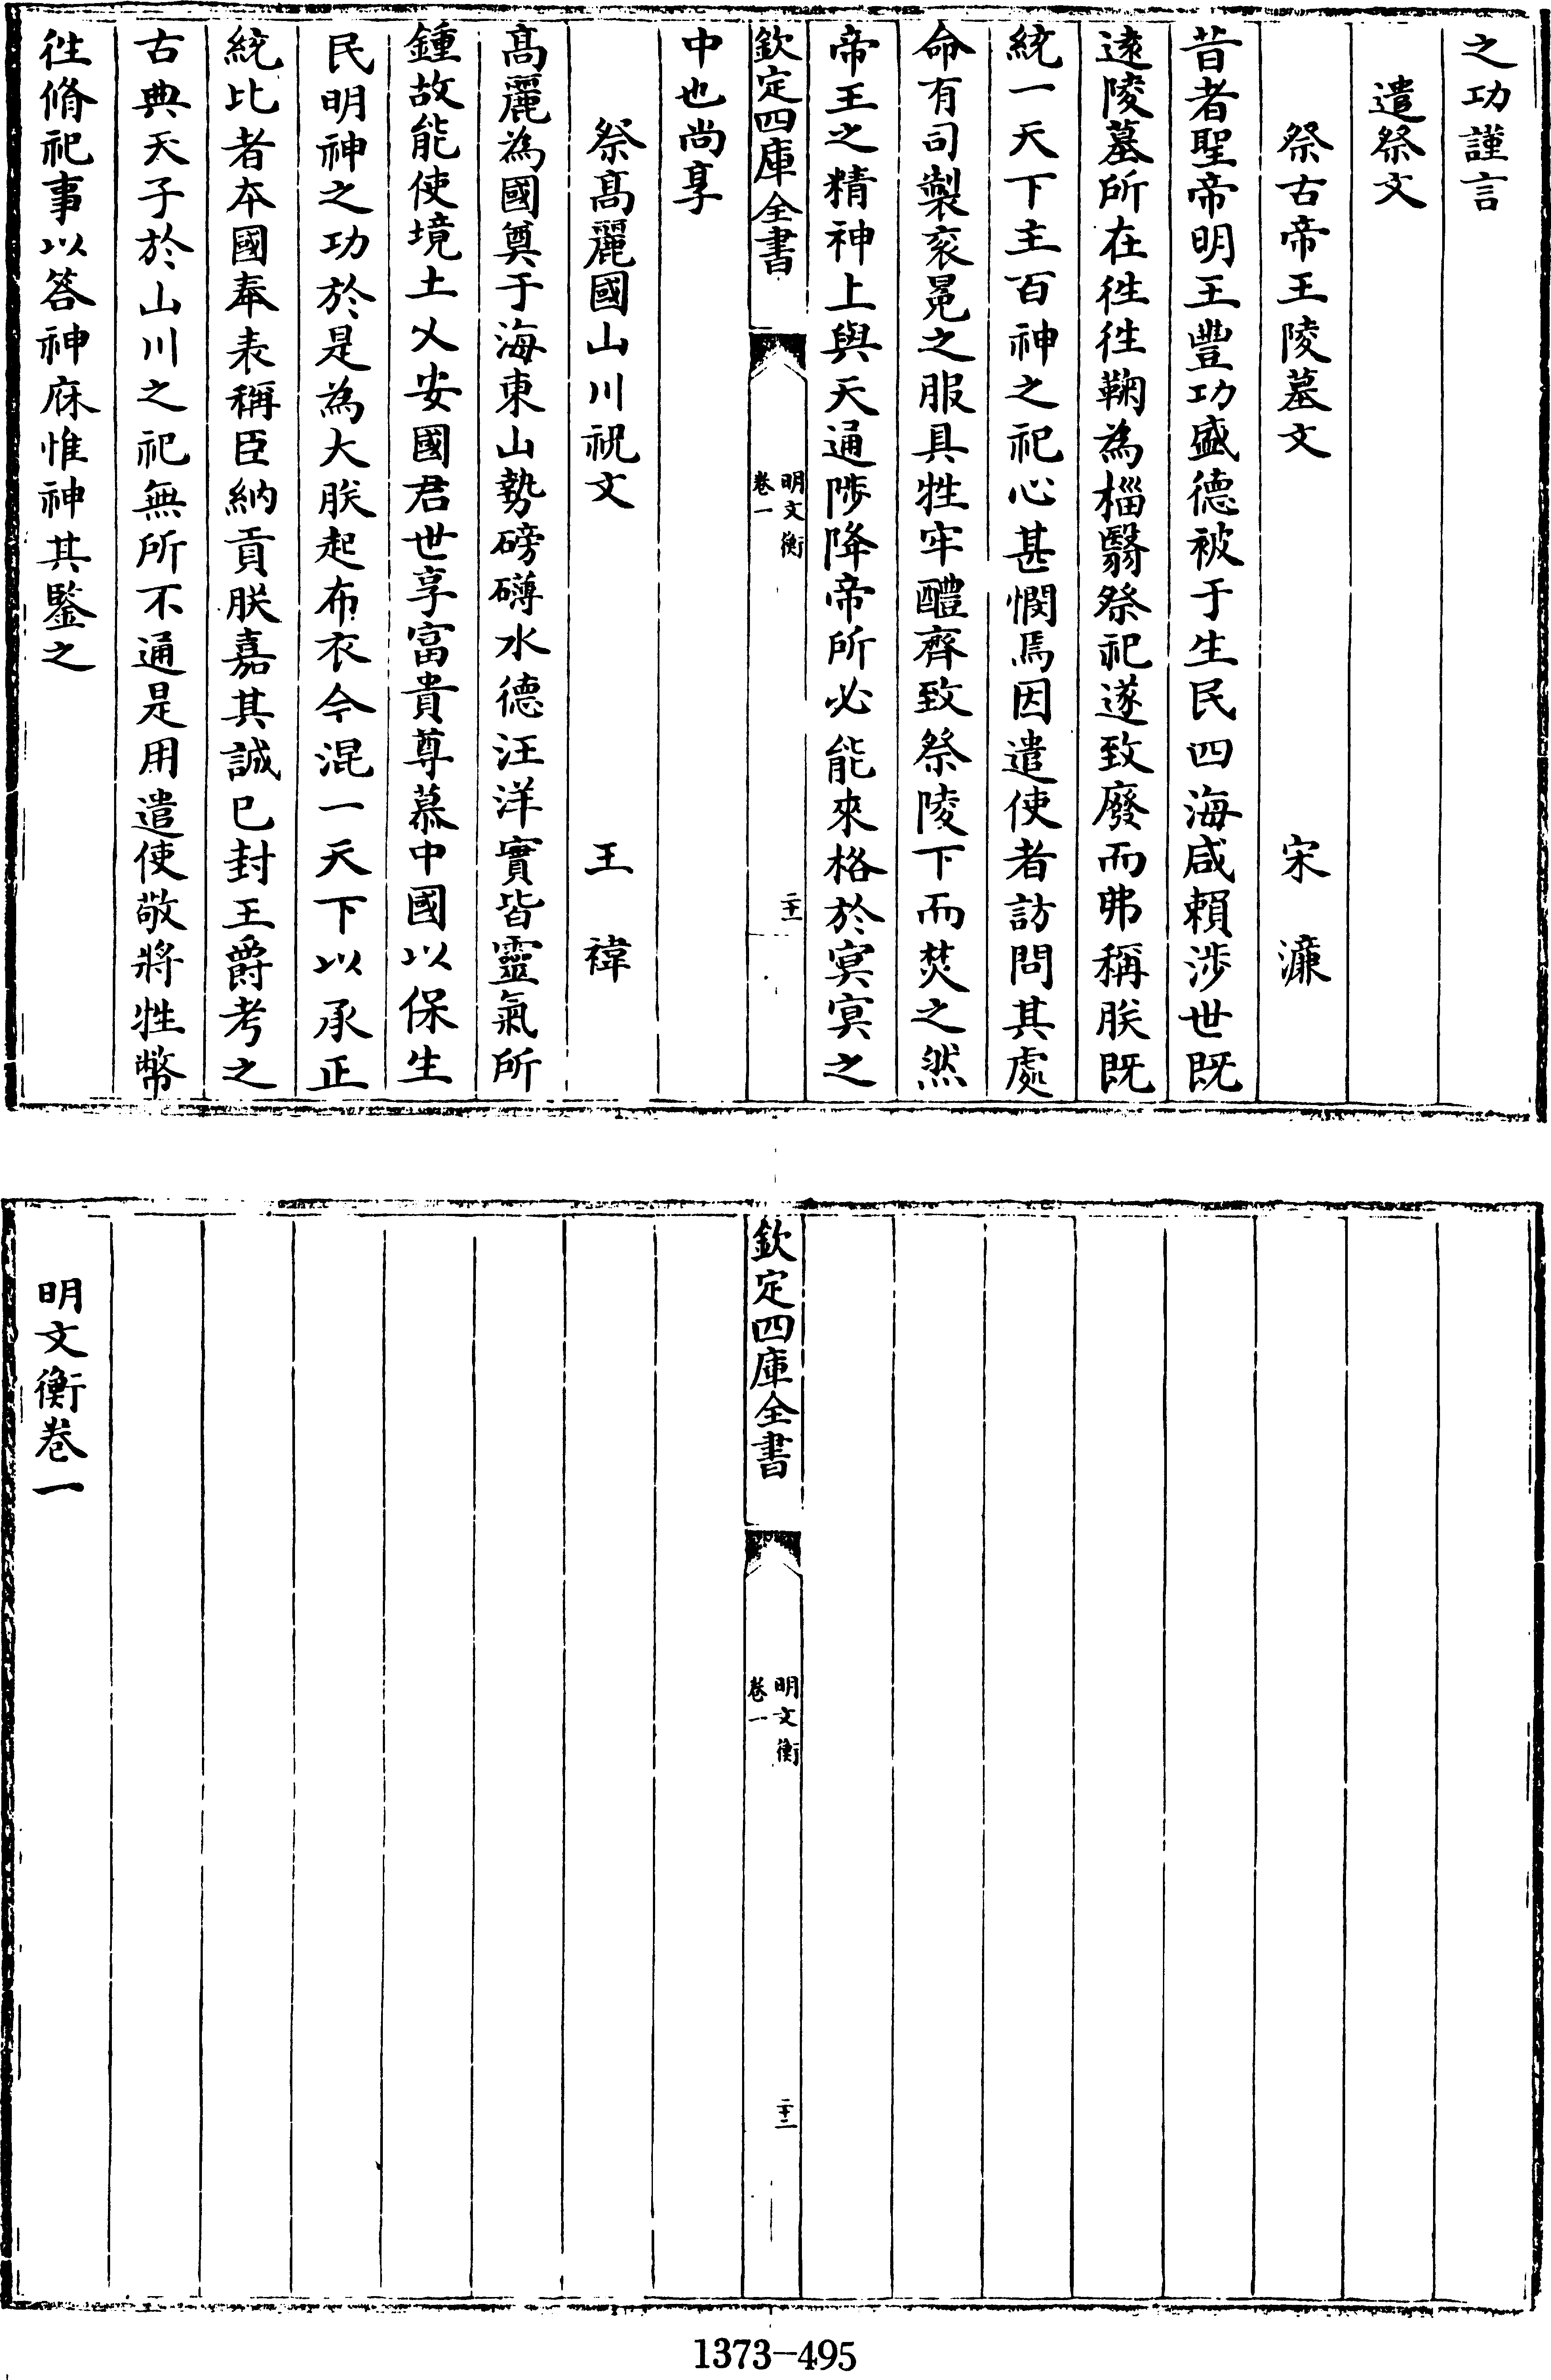 之功謹言
遣祭文
祭古帝王陵墓文 宋濂
昔者聖帝明王豐功盛德被于生民四海咸賴渉世既
遠陵墓所在徃徃鞠為榴翳祭祀遂致廢而弗稱朕既
統一天下主百神之祀心甚憫焉因遣使者訪問其處
命有司製衮冕之服具牲牢醴齊致祭陵下而焚之然
帝王之精神上與天通陟降帝所必能來格於寞寞之
欽定四庫全書
明文衡
卷一
二十一
中也尚享
祭髙麗國山川祝文 王禕
髙麗為國奠于海東山勢磅礴水德汪洋實皆靈氣所
鍾故能使境土乂安國君世享富貴尊慕中國以保生
民明神之功於是為大朕起布衣今混一天下以承正
統比者本國奉表稱臣納貢朕嘉其誠已封王爵考之
古典天子於山川之祀無所不通是用遣使敬將牲幣
徃脩祀事以答神庥惟神其鑒之
欽定四庫全書
明文衡
卷一
二十二
明文衡卷一
1373-495